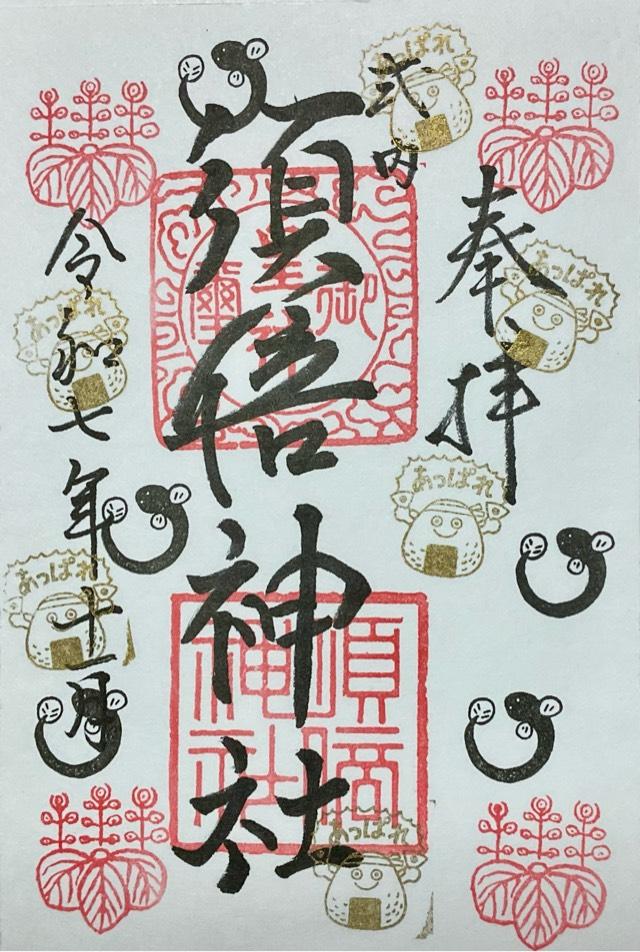 式内
奉拝
須倍神社
令和七年十一月
御璽
須倍
神社
あっぱれ
あっぱれ
あっぱれ
あっぱれ
あっぱれ
あっぱれ